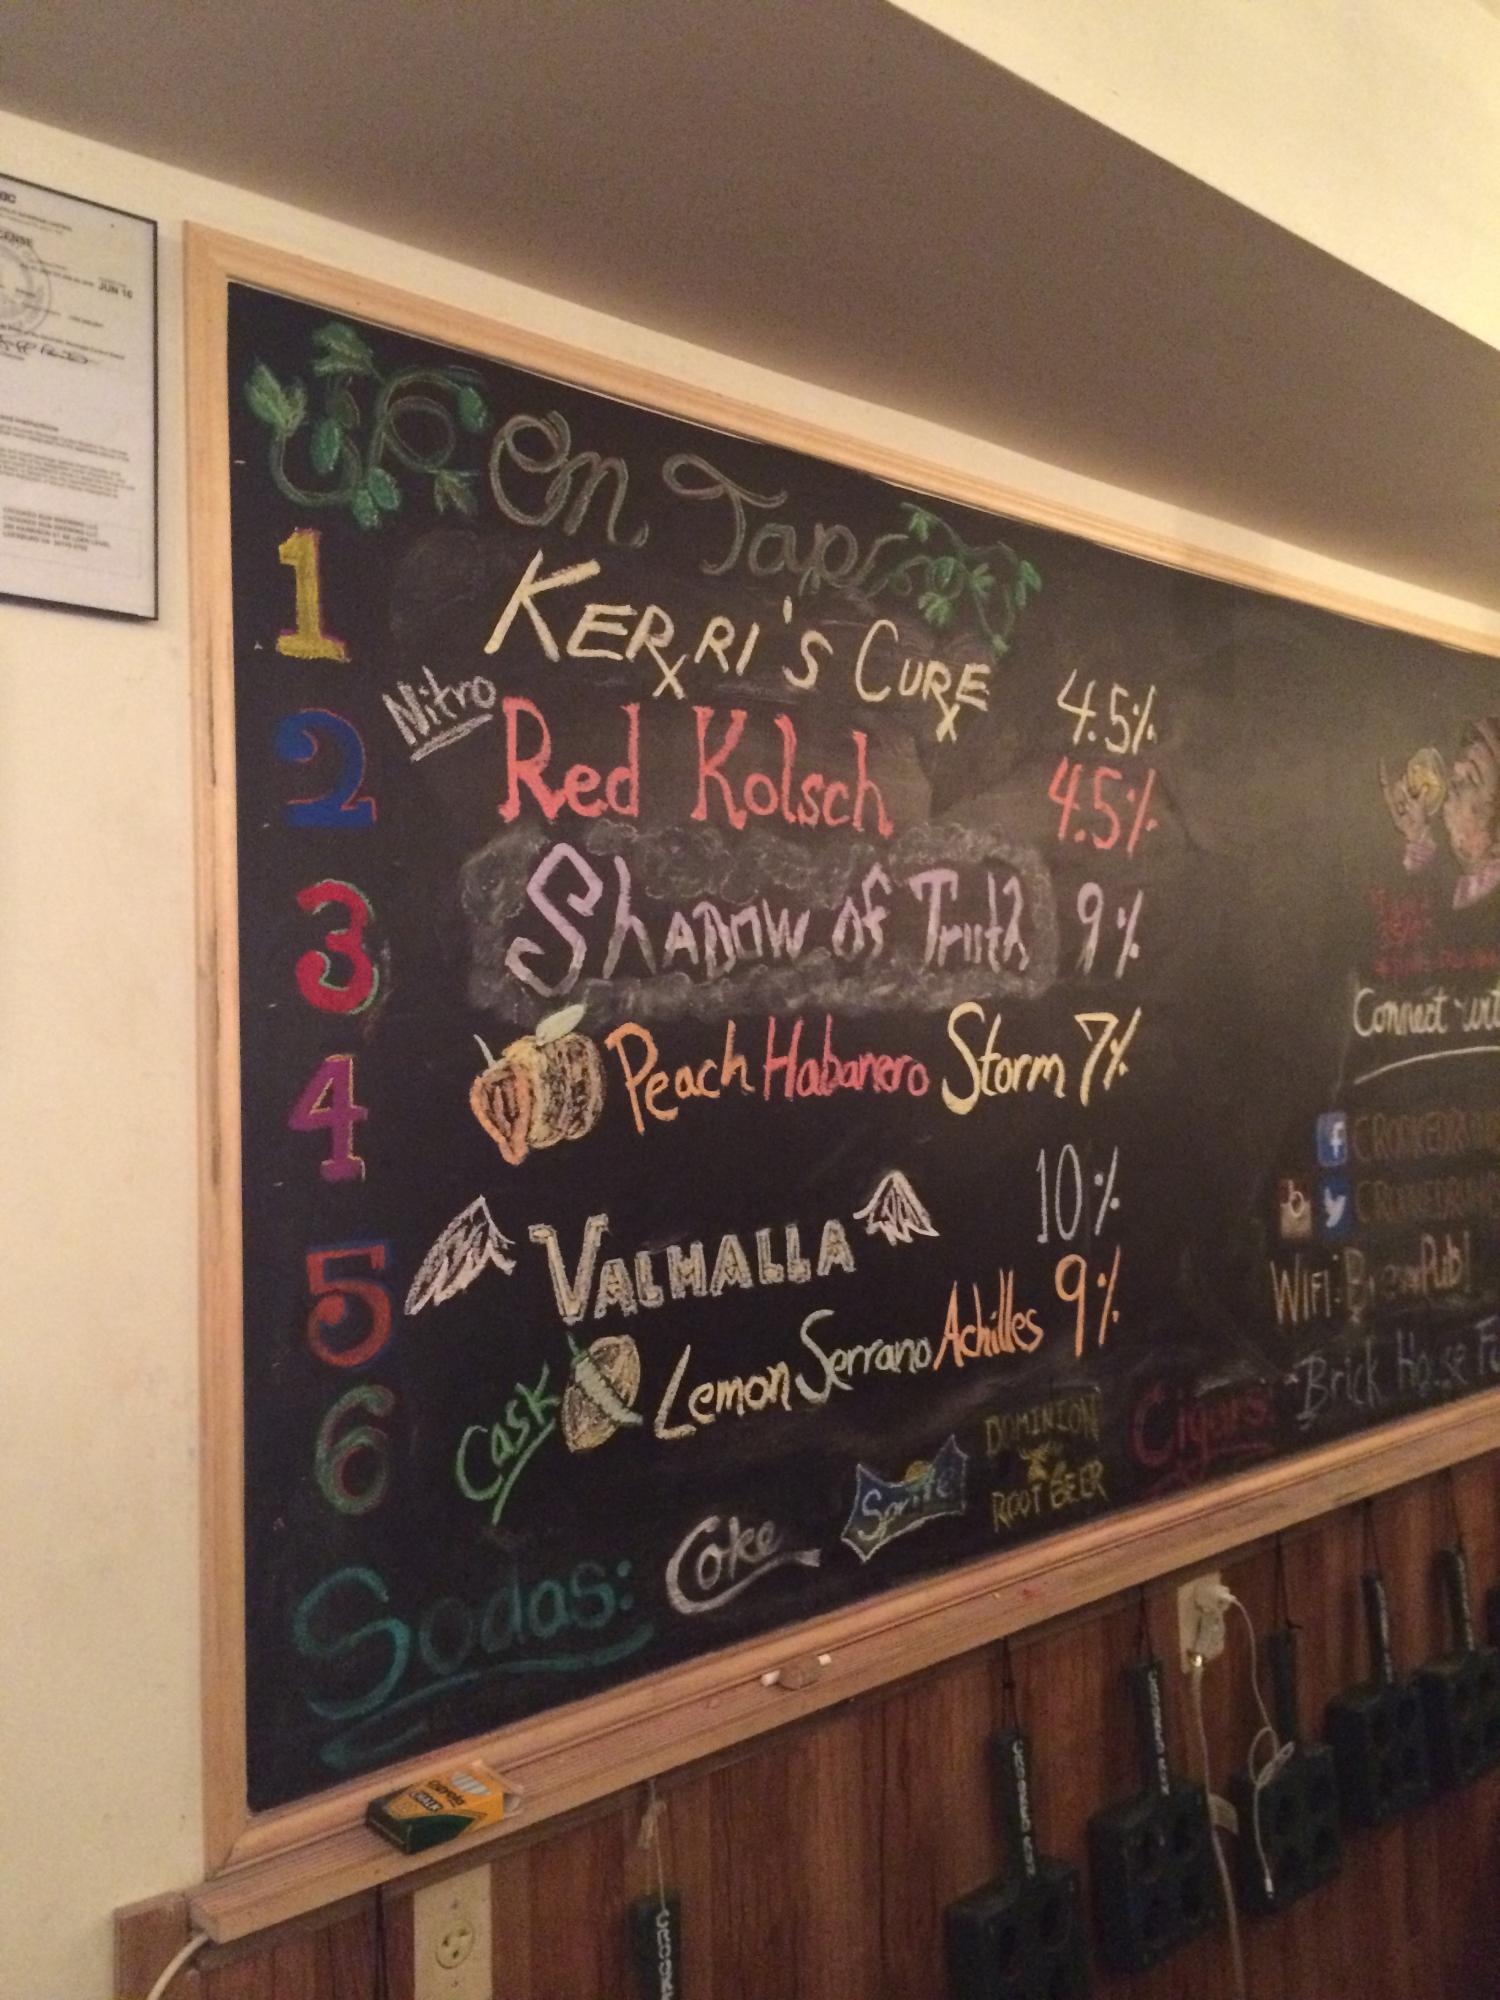 CENSE
JUN 16
CROOKED RUN BREWING LLC
CROOKED RUN BREWING LLC
On Tap
1 KERRI'S CURE 4.5%
2 Nitro Red Kolsch 4.5%
3 Shadow of Truth 9%
4 Peach Habanero Storm 7%
5 VALHALLA 10%
6 Cask Lemon Serrano Achilles 9%
Sodas: Coke Sprite DOMINION ROOT BEER
Cigars: Brick House
Connect
f CROOKEDRUN
CROOKEDRUN
WIFI: BrewPub!
Crayola
CHALK